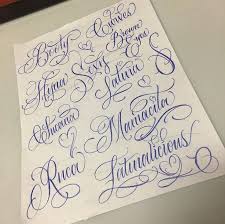 Booty Curves
Brown Eyes
Hyna Sexy Latina
Mamacita
Ruca Latinalicious